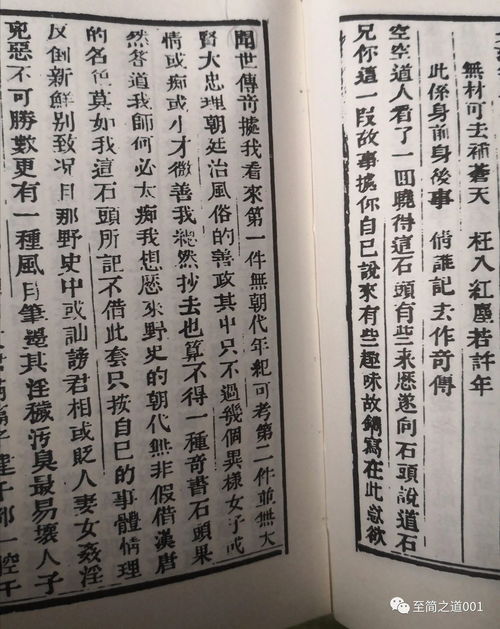 無材可去補蒼天　枉入紅塵若許年
此係身前身後事　倩誰記去作奇傳
空空道人看了一回曉得這石頭有些来歷遂向石頭說道石
兄你這一段故事據你自己說來有些趣味故鐫寫在此意欲
聞世傳奇據我看來第一件無朝代年紀可考第二件並無大
賢大忠理朝廷治風俗的善政其中只不過幾個異樣女子或
情或痴或小才微善我總然抄去也算不得一種奇書石頭果
然答道我師何必太痴我想歷來野史的朝代無非假借漢唐
的名色莫如我這石頭所記不借此套只按自己的事體情理
反倒新鮮别致况且那野史中或訕謗君相或貶人妻女姦淫
兇惡不可勝數更有一種風月筆墨其淫穢污臭最易壞人子
千部一腔千
至简之道001